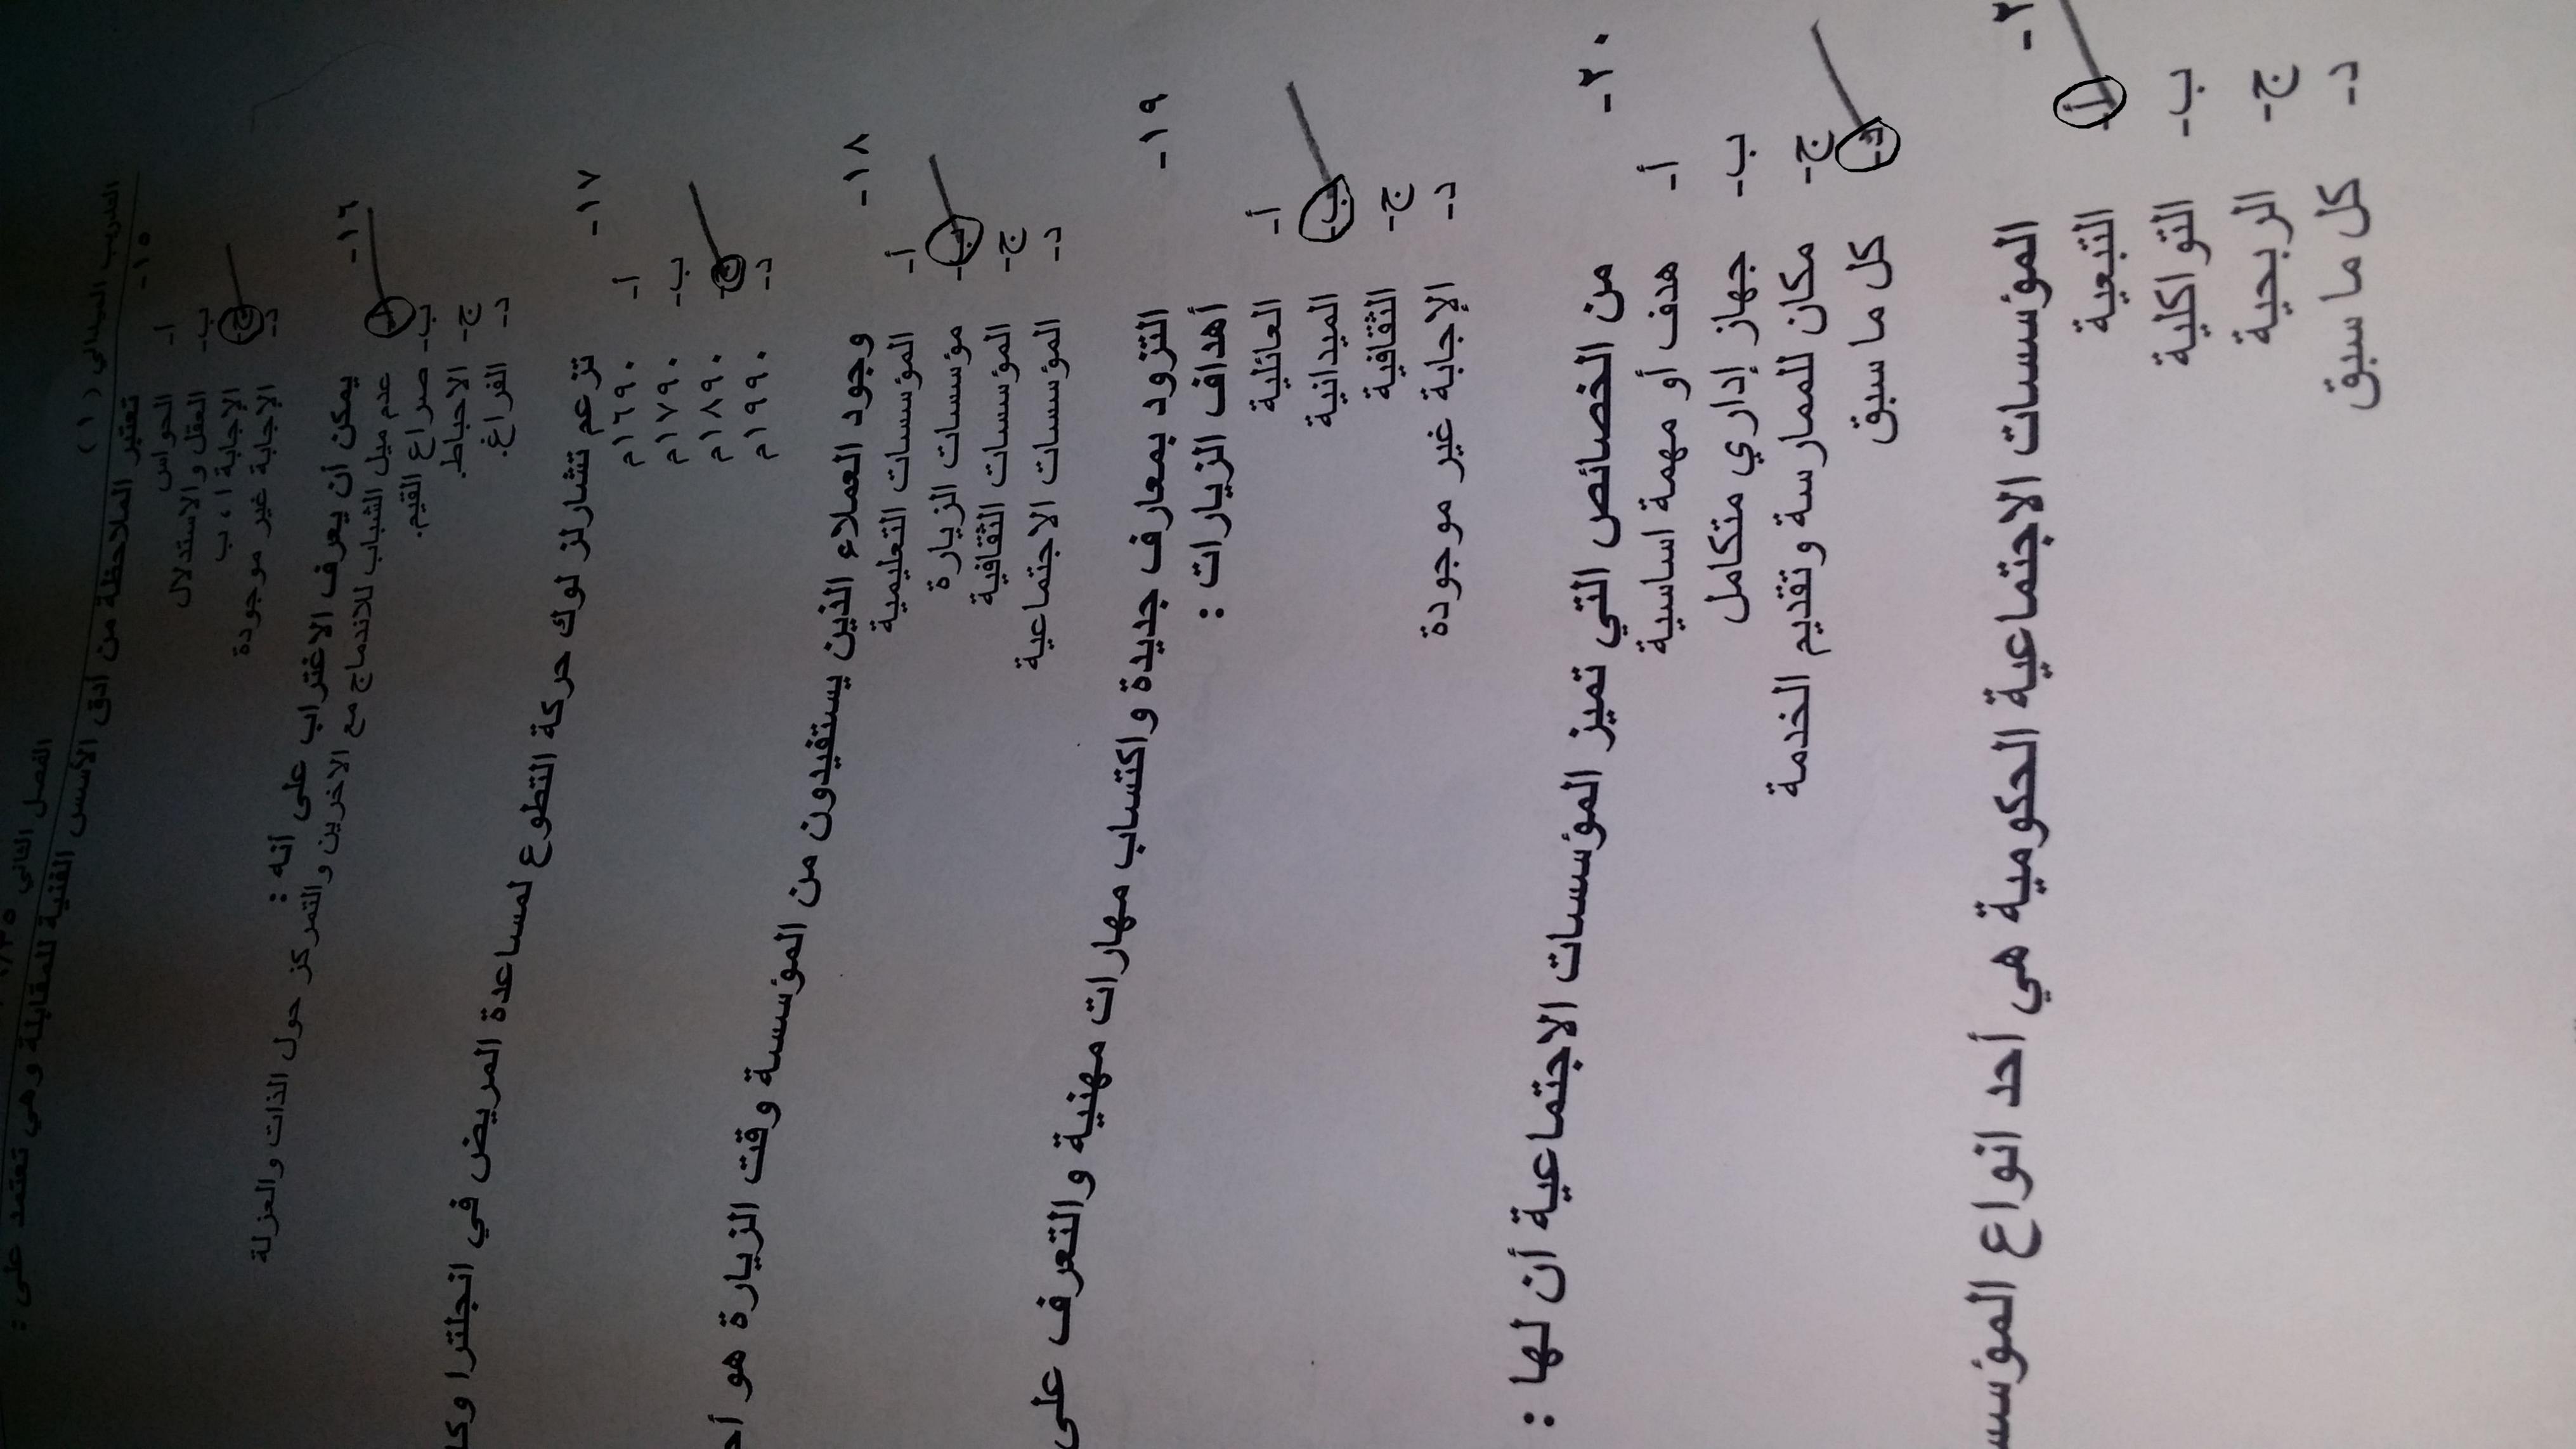 الفصل الثاني
التدريب الميداني ( ١ )
١٥- تعتبر الملاحظة من أدق الأسس الفنية للمقابلة وهي تعتمد على :
أ- الحواس
ب- العقل والاستدلال
ج- الإجابة أ ، ب
د- الإجابة غير موجودة
١٦- يمكن أن يعرف الاغتراب على أنه :
أ- عدم ميل الشباب للاندماج مع الاخرين والتمركز حول الذات والعزلة
ب- صراع القيم.
ج- الاحباط.
د- الفراغ.
١٧- تزعم تشارلز لوك حركة التطوع لمساعدة المريض في انجلترا
أ- ١٦٩٠م
ب- ١٧٩٠م
ج- ١٨٩٠م
د- ١٩٩٠م
١٨- وجود العملاء الذين يستفيدون من المؤسسة وقت الزيارة هو
أ- المؤسسات التعليمية
ب- مؤسسات الزيارة
ج- المؤسسات الثقافية
د- المؤسسات الاجتماعية
١٩- التزود بمعارف جديدة واكتساب مهارات مهنية والتعرف على
أهداف الزيارات :
أ- العائلية
ب- الميدانية
ج- الثقافية
د- الإجابة غير موجودة
٢٠- من الخصائص التي تميز المؤسسات الاجتماعية أن لها :
أ- هدف أو مهمة اساسية
ب- جهاز إداري متكامل
ج- مكان للممارسة وتقديم الخدمة
د- كل ما سبق
المؤسسات الاجتماعية الحكومية هي أحد انواع
أ- التبعية
ب- التواكلية
ج- الربحية
د- كل ما سبق